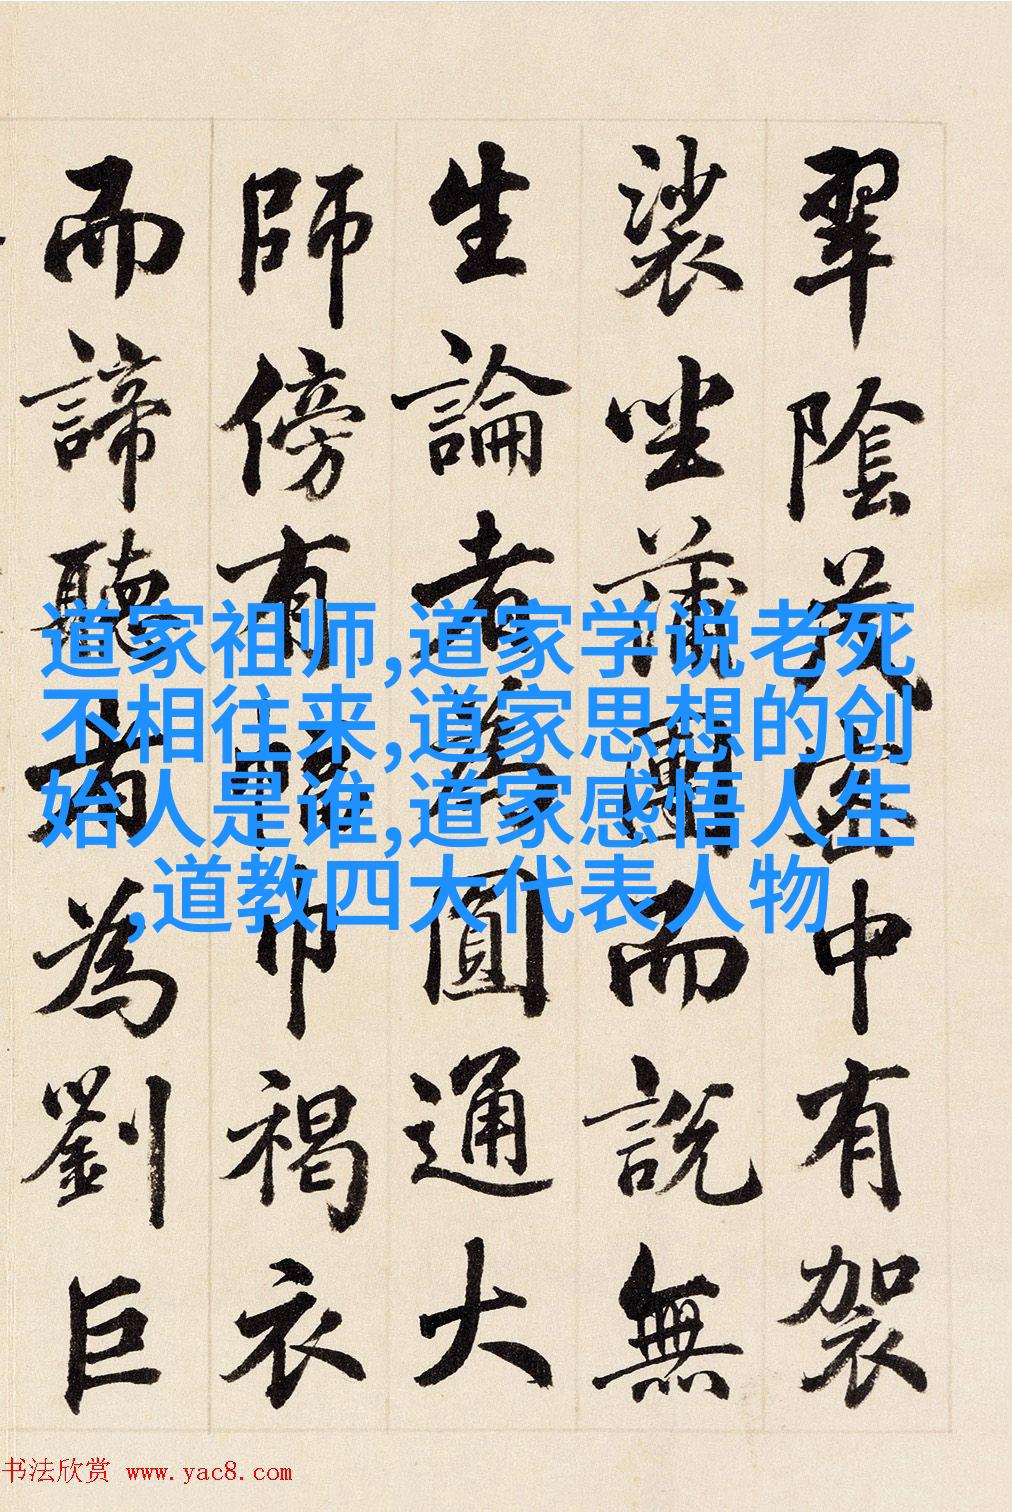 翠陰茂密中有袈
裟坐蒲團而說無
生論者為圓通大
師傍有幅巾褐衣
而諦聽者為劉巨
道家祖师,道家学说老死
不相往来,道家思想的创
始人是谁,道家感悟人生
,道教四大代表人物
书法欣赏 www.yac8.com